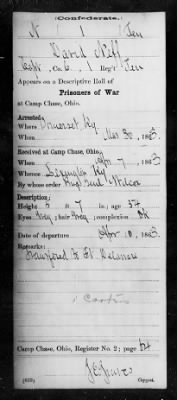 (Confederate.)
N 1 Ten
David Neff
Capt, Co. C, 1 Reg't Ten
Appears on a Descriptive Roll of
Prisoners of War
at Camp Chase, Ohio.
Arrested:
Where Somerset, Ky
When Mar 30, 1863.
Received at Camp Chase, Ohio:
When Apr 7, 1863
Whence Lexington Ky
By whose order
Description:
Height 5 ft. 7 in.; age 34
Eyes Grey; hair Grey; complexion Dk
Date of departure Apr 10, 1863
Remarks:
Transferred to Ft. Delaware
Camp Chase, Ohio, Register No. 2; page 64
(639)
Copyist.